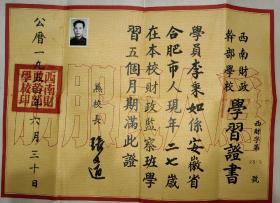 西南財政
幹部學校
學習證書
西財字第 號
學員李秉如係安徽省
合肥市人現年二七歲
在本校財政監察班學
習五個月期滿此證
校長
公曆一九五 年六月三十日
西南財政
幹部
學校印